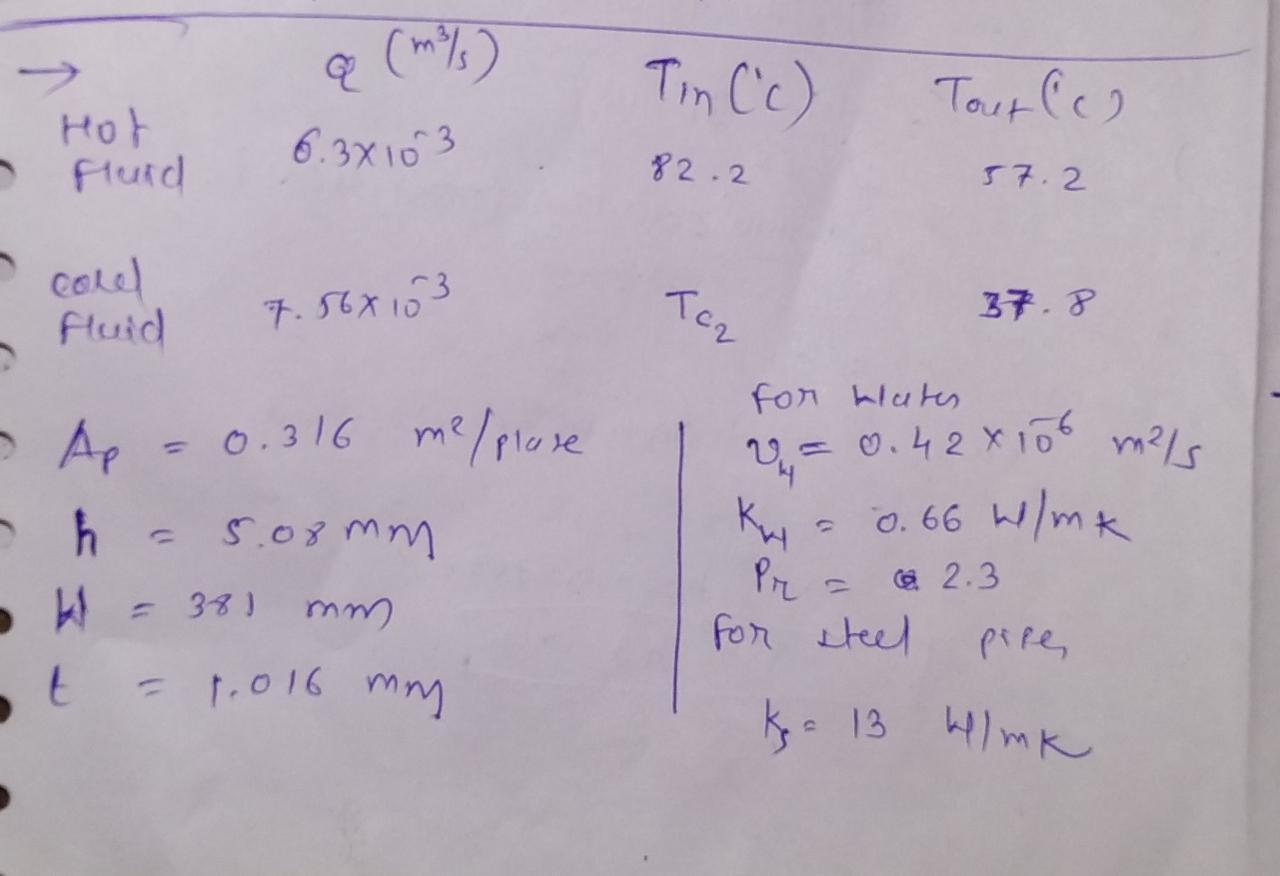 → Q (m³/s) Tin (°c) Tout (°c)
Hot
Fluid 6.3×10⁻³ 82.2 57.2
cold
Fluid 7.56×10⁻³ Tc₂ 37.8
Ap = 0.316 m²/plate
h = 5.08 mm
W = 381 mm
t = 1.016 mm
for Water
νw = 0.42 × 10⁻⁶ m²/s
Kw = 0.66 W/mk
Pr = 2.3
for steel pipe,
Ks = 13 W/mk